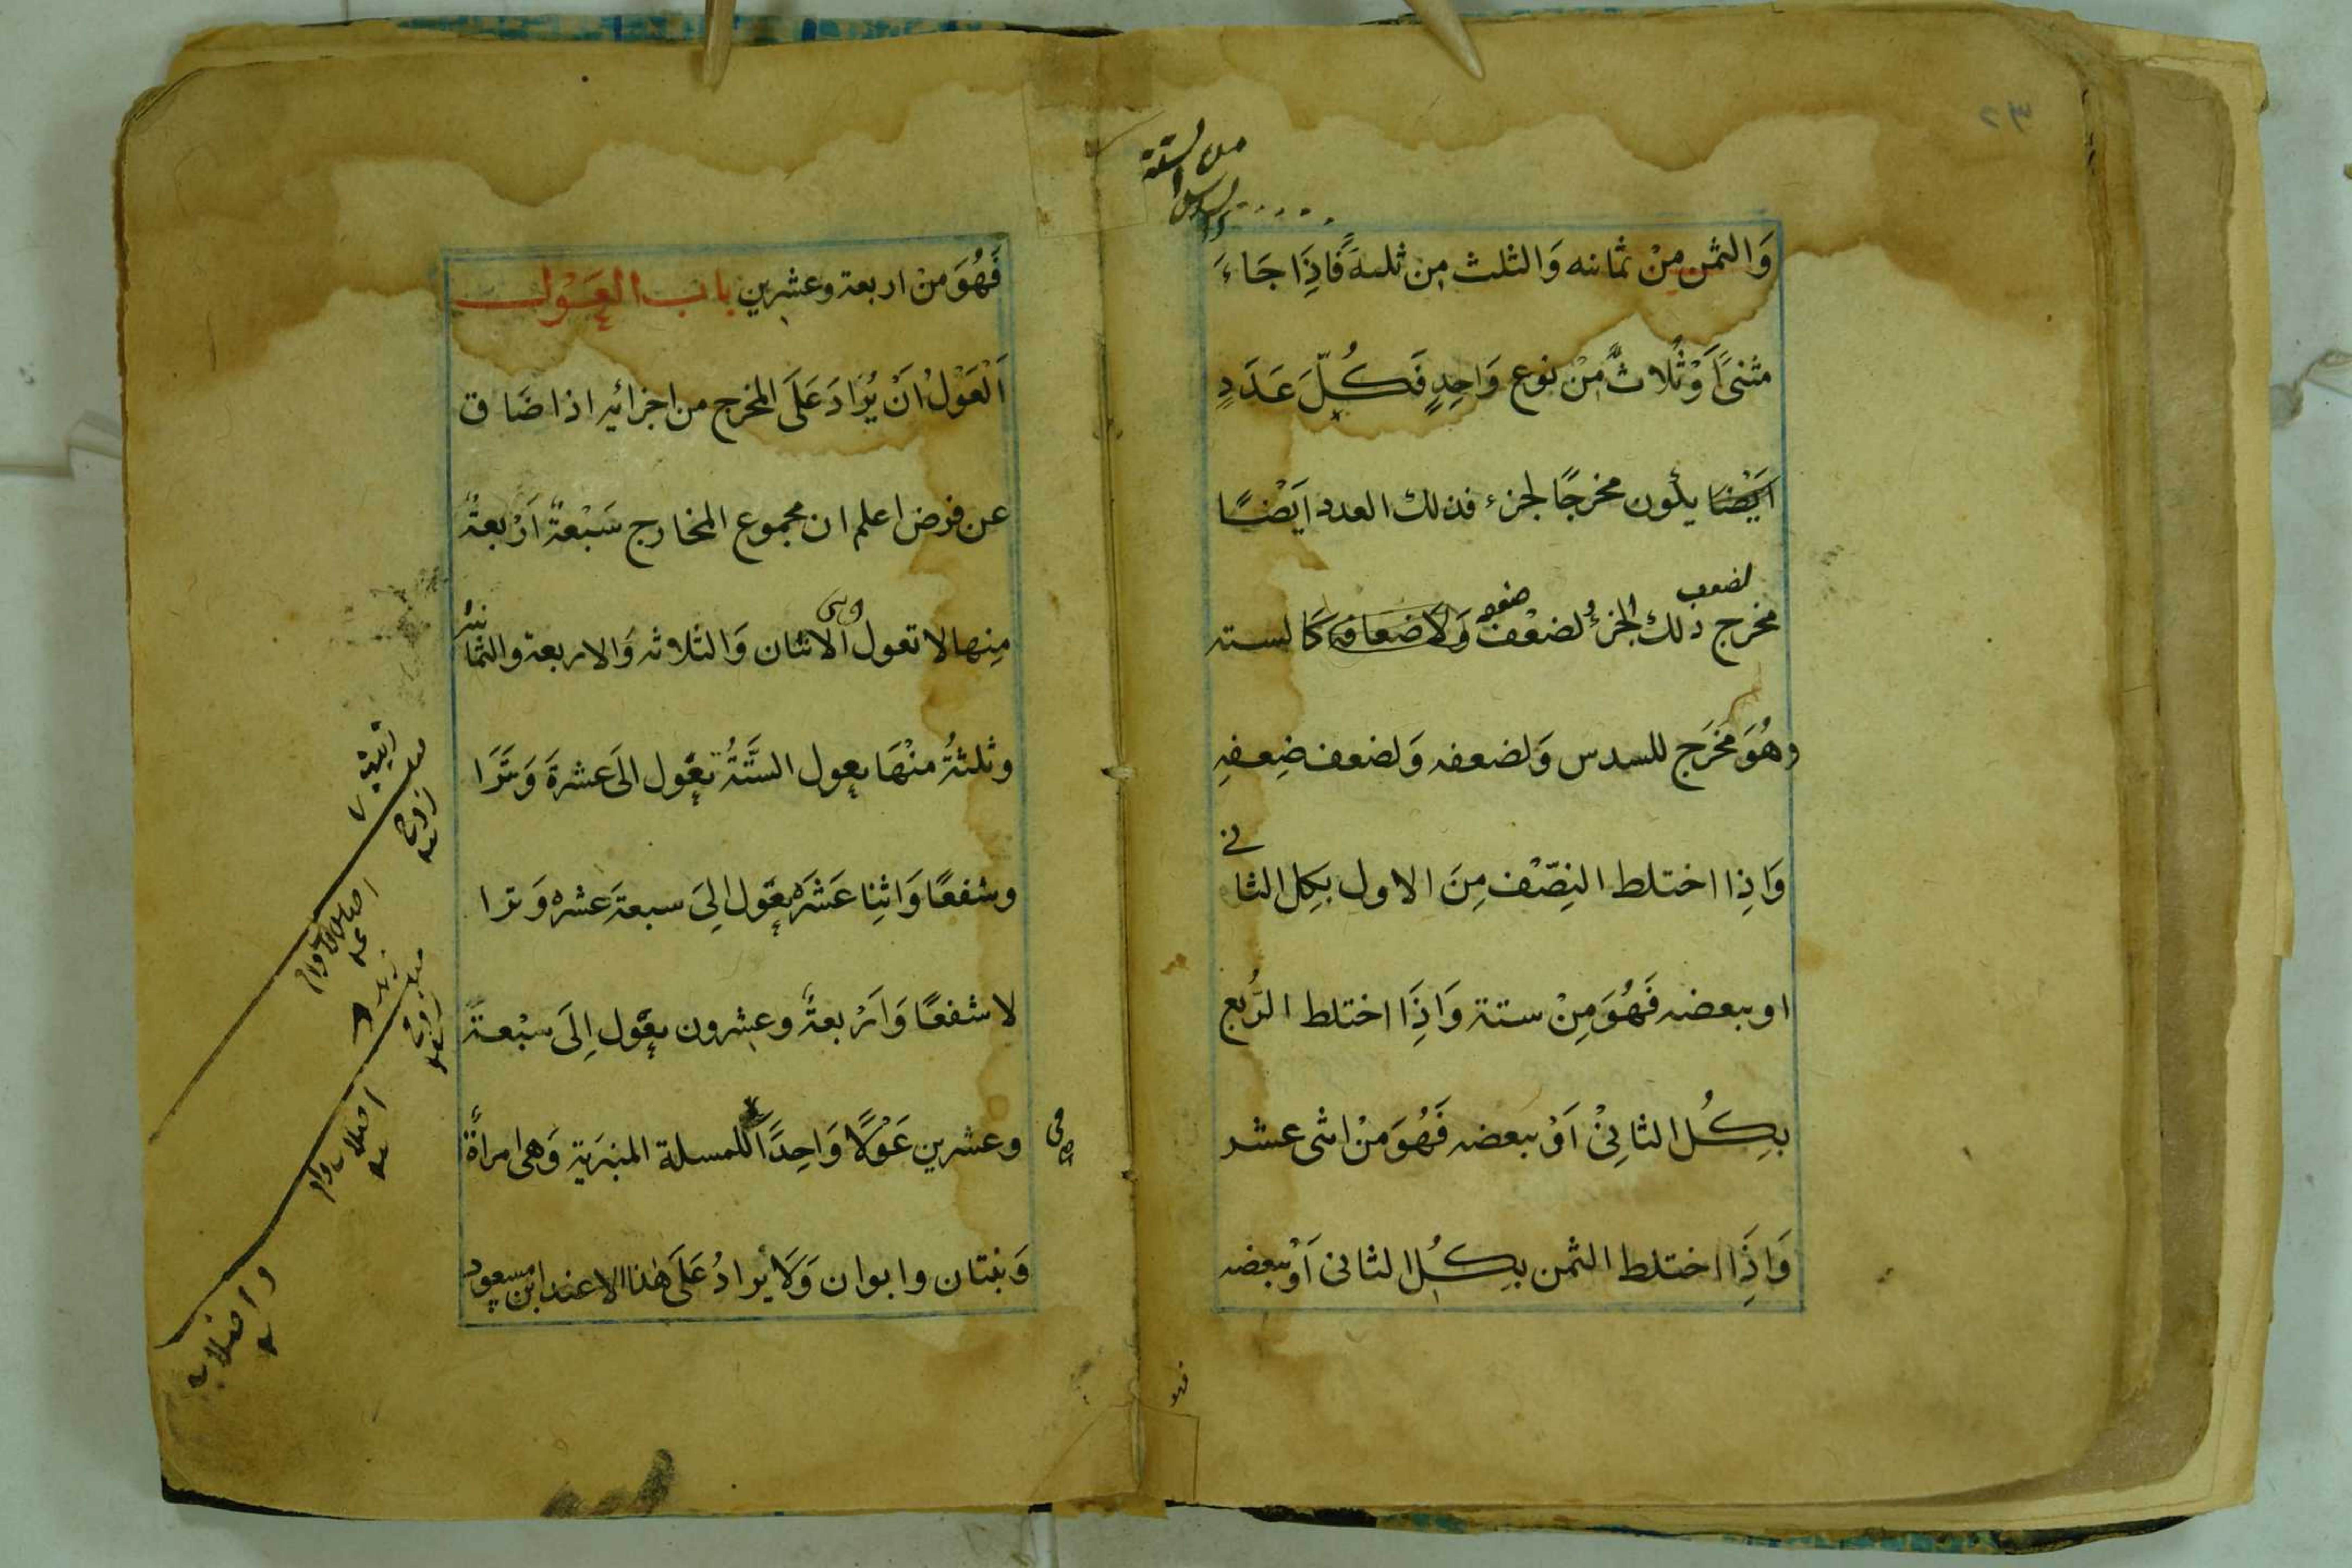 من الستة
والسدس
وَالثمن مِنْ ثمانيه وَالثلث مِن ثلثة فَاِذَا جَاءَ
مثنىً اَوْ ثُلاثٌ مِنْ نوع وَاحِدٍ فَكُلّ عَدَدٍ
اَيْضًا يكون مخرجًا لجزء فذلك العدد اَيْضًا
لضعف ضعفه
مخرج ذلك الجزءُ لضعْف وَلاضعافه كَالسته
وهُوَ مَخْرَج للسدس وَلضعفه وَلضعف ضِعفِهِ
وَاِذا اختلط النِصْف مِنَ الاول بكِل الثانى
او ببعضه فَهُوَ مِنْ ستة وَاِذَا اختلط الرُبع
بِكُل الثانِىْ اَوْ ببعضه فَهُوَ مِنْ اثنى عشر
وَاِذَا اختلط الثمن بِكُل الثانى اَوْ ببعضه
فهو
فَهُوَ مِنْ اربعة وعشرين باب العَوْل
اَلْعَوْلُ اَنْ يُزَادَ عَلَى المخرج من اجزائه اذا ضَاق
عن فرض اعلم ان مجموع المخارج سَبْعَةٌ اَرْبعةٌ
مِنها لا تعول الاثنان وَالثلاثه وَالاربعة والثمانيه
وثلثةٌ مِنْهَا يعول الستَّةُ تعَول الَى عشرةَ وَتَرَا
وشفعًا وَاثنِا عَشَرَ يعَول اِلىَ سبعةَ عشره وَترا
لا شفعًا وَاَرْبعةٌ وعشرون يعَول اِلَى سبْعةَ
وعشرين عَوْلًا وَاحِدًا للمسلة المنبَرية وَهى امرأةٌ
وَبنتان وابوان وَلَا يُزادُ عَلَى هٰذا الا عند ابن مسعود
زوج
زوج